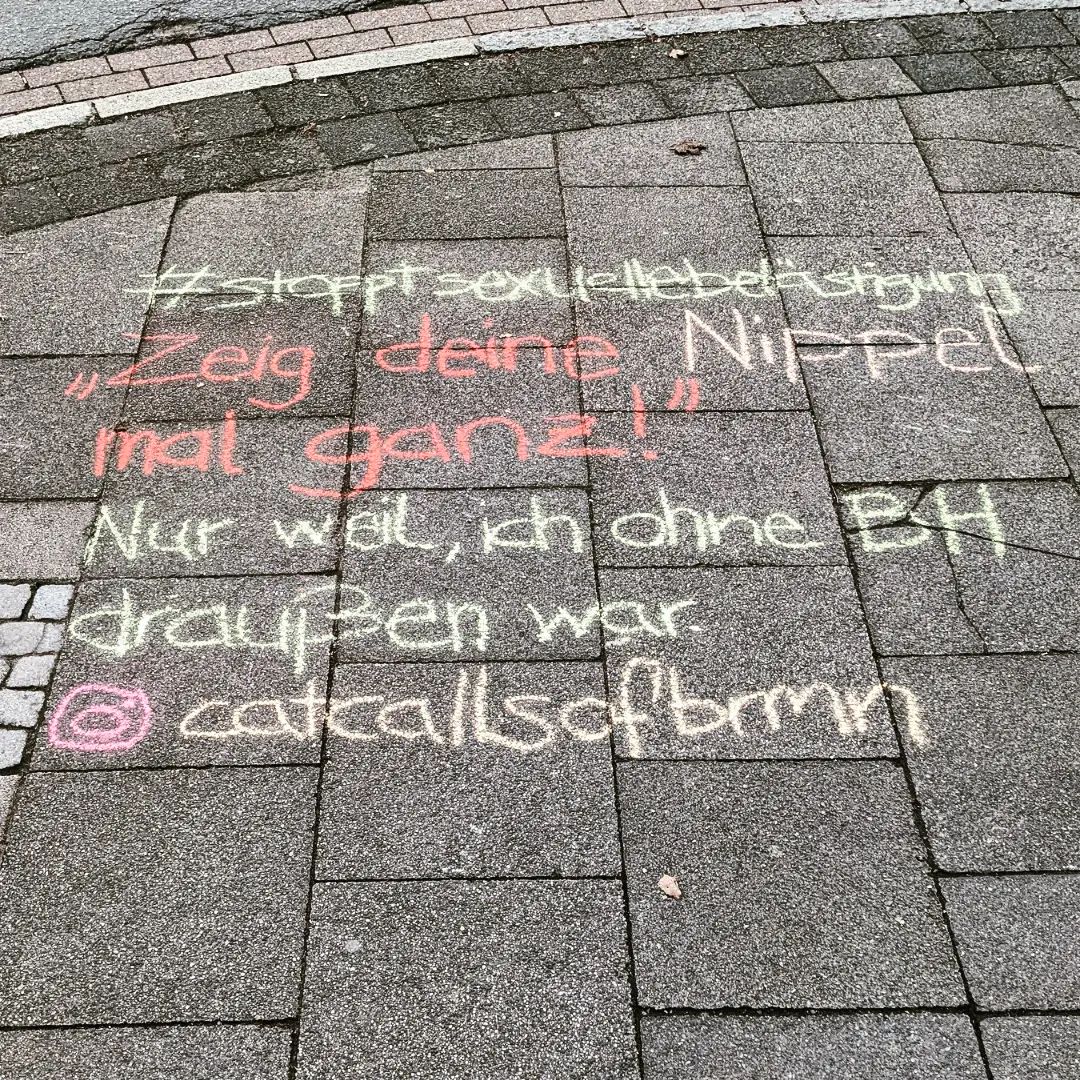 #stopptsexuellebelästigung
„Zeig deine Nippel
mal ganz!”
Nur weil, ich ohne BH
draußen war.
@catcallsofbrmn